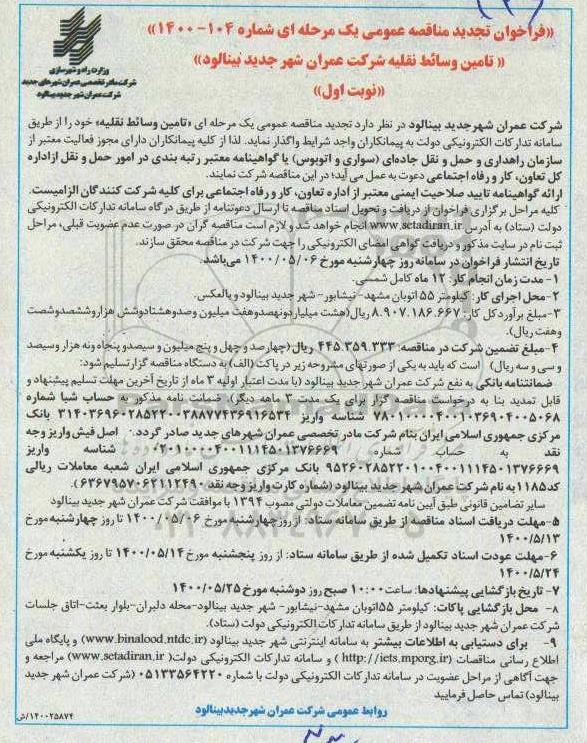 «فراخوان تجدید مناقصه عمومی یک مرحله ای شماره ۱۰۴-۱۴۰۰»
« تامین وسائط نقلیه شرکت عمران شهر جدید بینالود»
«نوبت اول»
وزارت راه و شهرسازی
شرکت مادر تخصصی عمران شهرهای جدید
شرکت عمران شهر جدید بینالود
شرکت عمران شهرجدید بینالود در نظر دارد تجدید مناقصه عمومی یک مرحله ای «تامین وسائط نقلیه» خود را از طریق
سامانه تدارکات الکترونیکی دولت به پیمانکاران واجد شرایط واگذار نماید. لذا از کلیه پیمانکاران دارای مجوز فعالیت معتبر از
سازمان راهداری و حمل و نقل جاده‌ای (سواری و اتوبوس) یا گواهینامه معتبر رتبه بندی در امور حمل و نقل ازاداره
کل تعاون، کار و رفاه اجتماعی دعوت به عمل می آید؛ در این مناقصه شرکت نمایند.
ارائه گواهینامه تایید صلاحیت ایمنی معتبر از اداره تعاون، کار و رفاه اجتماعی برای کلیه شرکت کنندگان الزامیست.
کلیه مراحل برگزاری فراخوان از دریافت و تحویل اسناد مناقصه تا ارسال دعوتنامه از طریق درگاه سامانه تدارکات الکترونیکی
دولت (ستاد) به آدرس www.setadiran.ir انجام خواهد شد و لازم است مناقصه گران در صورت عدم عضویت قبلی، مراحل
ثبت نام در سایت مذکور و دریافت گواهی امضای الکترونیکی را جهت شرکت در مناقصه محقق سازند.
تاریخ انتشار فراخوان در سامانه روز چهارشنبه مورخ ۱۴۰۰/۰۵/۰۶ می‌باشد.
۱- مدت زمان انجام کار: ۱۲ ماه کامل شمسی.
۲-محل اجرای کار: کیلومتر ۵۵ اتوبان مشهد- نیشابور- شهر جدید بینالود و بالعکس.
۳-مبلغ برآورد کل کار: ۸.۹۰۷.۱۸۶.۶۶۷ ریال(هشت میلیاردونهصدوهفت میلیون وصدوهشتادوشش هزاروششصدوشصت
وهفت ریال).
۴-مبلغ تضمین شرکت در مناقصه: ۴۴۵.۳۵۹.۳۳۳ ریال(چهارصد و چهل و پنج میلیون و سیصدو پنجاه ونه هزار وسیصد
و سی و سه ریال) است که باید به یکی از صورتهای مشروحه زیر در پاکت (الف) به دستگاه مناقصه گزار تسلیم شود:
ضمانتنامه بانکی به نفع شرکت عمران شهر جدید بینالود (با مدت اعتبار اولیه ۳ ماه از تاریخ آخرین مهلت تسلیم پیشنهاد و
قابل تمدید بنا به درخواست مناقصه گزار برای یک مدت ۳ ماهه دیگر). ضمانت نامه مذکور به حساب شبا شماره
شناسه واریز بانک
مرکزی جمهوری اسلامی ایران بنام شرکت مادر تخصصی عمران شهرهای جدید صادر گردد. اصل فیش واریز وجه
نقد به حساب شماره شناسه واریز
بانک مرکزی جمهوری اسلامی ایران شعبه معاملات ریالی
کد۱۱۸۵ به نام شرکت عمران شهر جدید بینالود (شماره کارت واریز وجه نقد ۶۳۶۷۹۵۷۰۶۲۱۱۲۴۹۰)
سایر تضامین قانونی طبق آیین نامه تضمین معاملات دولتی مصوب ۱۳۹۴ با موافقت شرکت عمران شهر جدید بینالود
۵-مهلت دریافت اسناد مناقصه از طریق سامانه ستاد: از روزچهارشنبه مورخ ۱۴۰۰/۰۵/۰۶ تا روز چهارشنبه مورخ
۱۴۰۰/۵/۱۳
۶-مهلت عودت اسناد تکمیل شده از طریق سامانه ستاد: از روز پنجشنبه مورخ ۱۴۰۰/۰۵/۱۴ تا روز یکشنبه مورخ
۱۴۰۰/۵/۲۴
۷- تاریخ بازگشایی پیشنهادها: ساعت ۱۰:۰۰ صبح روز دوشنبه مورخ ۱۴۰۰/۰۵/۲۵
۸- محل بازگشایی پاکات: کیلومتر ۵۵اتوبان مشهد-نیشابور- شهر جدید بینالود-محله دلبران-بلوار بعثت-اتاق جلسات
شرکت عمران شهر جدید بینالود از طریق سامانه تدارکات الکترونیکی دولت (ستاد).
۹- برای دستیابی به اطلاعات بیشتر به سامانه اینترنتی شهر جدید بینالود (www.binalood.ntdc.ir) و پایگاه ملی
اطلاع رسانی مناقصات (http://iets.mporg.ir) و سامانه تدارکات الکترونیکی دولت( www.setadiran.ir) مراجعه و
جهت آگاهی از مراحل عضویت در سامانه تدارکات الکترونیکی دولت با شماره ۰۵۱۳۳۵۶۴۲۲۰ (شرکت عمران شهر جدید
بینالود) تماس حاصل فرمایید
روابط عمومی شرکت عمران شهرجدیدبینالود
۱۴۰۰۲۵۸۷۴/ش